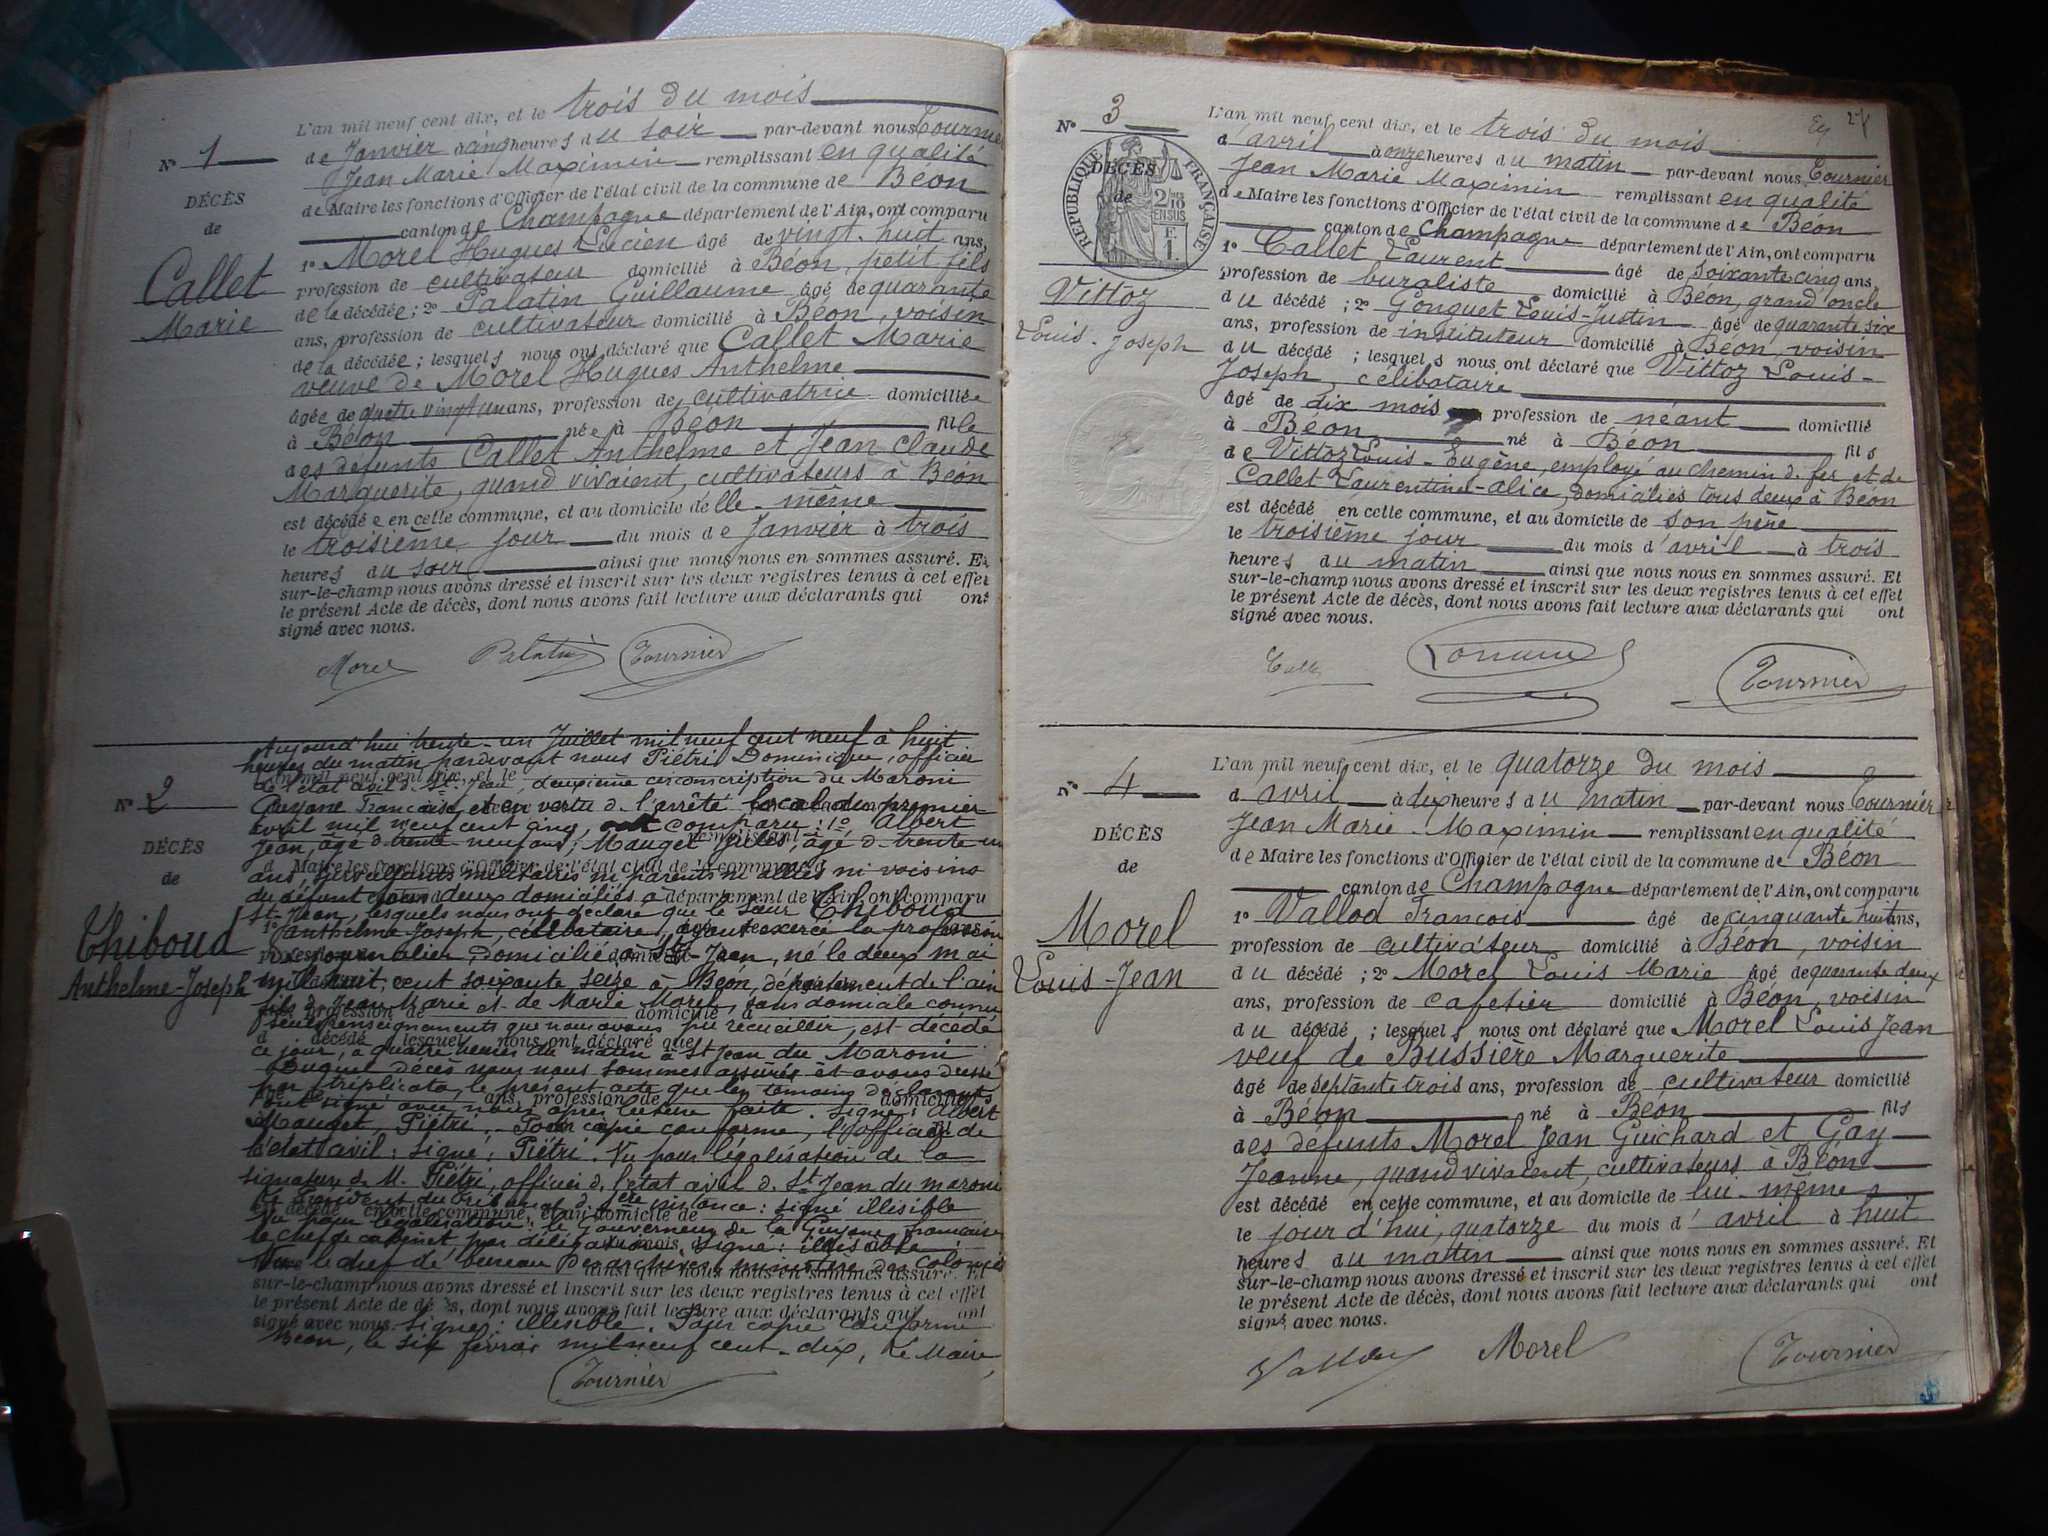 L'an mil neuf cent dix, et le trois du mois
de Janvier à cinq heures du soir par-devant nous Tournier
Jean Marie Maximin remplissant en qualité
de Maire les fonctions d'Officier de l'état civil de la commune de Béon
canton de Champagne département de l'Ain, ont comparu
1º Morel Hugues Lucien âgé de vingt-huit ans,
profession de cultivateur domicilié à Béon, petit fils
de la décédée; 2º Palatin Guillaume âgé de quarante
ans, profession de cultivateur domicilié à Béon, voisin
de la décédée; lesquels nous ont déclaré que Callet Marie
veuve de Morel Hugues Anthelme
âgée de quatre vingt un ans, profession de cultivatrice domiciliée
à Béon née à Béon fille
des défunts Callet Anthelme et Jean Claude
Marguerite, quand vivaient, cultivateurs à Béon
est décédée en cette commune, et au domicile d'elle-même
le troisième jour du mois de Janvier à trois
heures du soir ainsi que nous nous en sommes assuré. Et
sur-le-champ nous avons dressé et inscrit sur les deux registres tenus à cet effet
le présent Acte de décès, dont nous avons fait lecture aux déclarants qui ont
signé avec nous.
Nº 1
DÉCÈS
de
Callet
Marie
Morel Palatin Tournier
Nº 2
DÉCÈS
de
Thiboud
Anthelme-Joseph
Aujourd'hui trente-un Juillet mil neuf cent neuf à huit
heures du matin pardevant nous Piétri Dominique, officier
de l'état civil de St Jean, deuxième circonscription du Maroni
Guyane Française et en vertu de l'arrêté local du premier
avril mil neuf cent cinq, ont comparu: 1º Albert
Jean, âgé de trente-neuf ans, Mauget Jules, âgé de trente un
ans, surveillants militaires ni parents ni alliés ni voisins
du défunt tous deux domiciliés à
St-Jean, lesquels nous ont déclaré que le sieur Thiboud
Anthelme Joseph, célibataire, ayant exercé la profession
de journalier, domicilié à St-Jean, né le deux mai
mil huit cent soixante seize à Béon, département de l'ain
fils de Jean Marie et de Marie Morel, sans domicile connu
seuls renseignements que nous avons pu recueillir, est décédé
ce jour, à quatre heures du matin à St Jean du Maroni
Duquel décès nous nous sommes assurés et avons dressé
par triplicata, le présent acte que les témoins déclarants
ont signé avec nous après lecture faite. Signé: Albert
Mauget, Piétri. Pour copie conforme, l'officier de
l'état civil: signé: Piétri. Vu pour légalisation de la
signature de M. Piétri, officier de l'état civil de St Jean du maroni
Le Président du Tribunal de 1ère instance: signé illisible
Vu pour légalisation: le Gouverneur de la Guyane française
le chef de cabinet, par délégation. Signé: illisible
Vu le chef de bureau des archives, ministère des Colonies
sur-le-champ nous avons dressé et inscrit sur les deux registres tenus à cet effet
le présent Acte de décès, dont nous avons fait lecture aux déclarants qui ont
signé avec nous. Signé: illisible. Pour copie conforme
Béon, le six février mil neuf cent-dix, Le Maire,
Tournier
24
Nº 3
RÉPUBLIQUE FRANÇAISE
2/10 EN SUS
F. 1.
DÉCÈS
de
Vittoz
Louis-Joseph
L'an mil neuf cent dix, et le trois du mois
d'avril à onze heures du matin par-devant nous Tournier
Jean Marie Maximin remplissant en qualité
de Maire les fonctions d'Officier de l'état civil de la commune de Béon
canton de Champagne département de l'Ain, ont comparu
1º Callet Laurent âgé de soixante cinq ans,
profession de buraliste domicilié à Béon, grand oncle
du décédé; 2º Gonguet Louis-Justin âgé de quarante six
ans, profession de instituteur domicilié à Béon, voisin
du décédé; lesquels nous ont déclaré que Vittoz Louis-
Joseph, célibataire
âgé de dix mois profession de néant domicilié
à Béon né à Béon fils
de Vittoz Louis-Eugène, employé au chemin de fer et de
Callet Laurentine-alice, domiciliés tous deux à Béon
est décédé en cette commune, et au domicile de son père
le troisième jour du mois d'avril à trois
heures du matin ainsi que nous nous en sommes assuré. Et
sur-le-champ nous avons dressé et inscrit sur les deux registres tenus à cet effet
le présent Acte de décès, dont nous avons fait lecture aux déclarants qui ont
signé avec nous.
Tournier
Nº 4
DÉCÈS
de
Morel
Louis-Jean
L'an mil neuf cent dix, et le quatorze du mois
d'avril à dix heures du matin par-devant nous Tournier
Jean Marie Maximin remplissant en qualité
de Maire les fonctions d'Officier de l'état civil de la commune de Béon
canton de Champagne département de l'Ain, ont comparu
1º Vallod François âgé de cinquante huit ans,
profession de cultivateur domicilié à Béon, voisin
du décédé; 2º Morel Louis Marie âgé de quarante deux
ans, profession de cafetier domicilié à Béon, voisin
du décédé; lesquels nous ont déclaré que Morel Louis Jean
veuf de Bussière Marguerite
âgé de septante trois ans, profession de cultivateur domicilié
à Béon né à Béon fils
des défunts Morel Jean Guichard et Gay
Jeanne, quand vivaient, cultivateurs à Béon
est décédé en cette commune, et au domicile de lui-même
le jour d'hui, quatorze du mois d'avril à huit
heures du matin ainsi que nous nous en sommes assuré. Et
sur-le-champ nous avons dressé et inscrit sur les deux registres tenus à cet effet
le présent Acte de décès, dont nous avons fait lecture aux déclarants qui ont
signé avec nous.
Vallod Morel Tournier